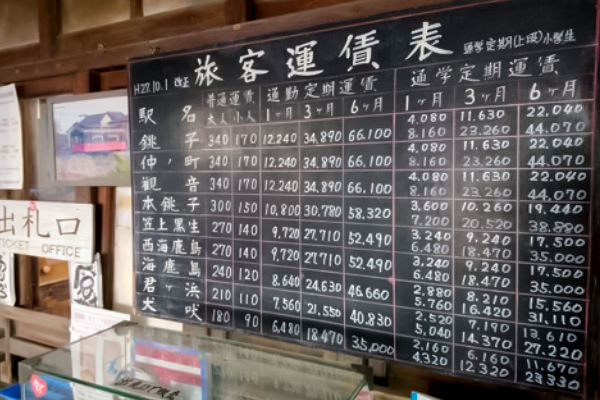 H27.10.1 改正 旅客運賃表 通学定期(上段)小学生
駅名 普通運賃 通勤定期運賃 通学定期運賃
大人 小人 1ヶ月 3ヶ月 6ヶ月 1ヶ月 3ヶ月 6ヶ月
銚子 340 170 12.240 34.890 66.100 4.080 11.630 22.040
8.160 23.260 44.070
仲ノ町 340 170 12.240 34.890 66.100 4.080 11.630 22.040
8.160 23.260 44.070
観音 340 170 12.240 34.890 66.100 4.080 11.630 22.040
8.160 23.260 44.070
本銚子 300 150 10.800 30.780 58.320 3.600 10.260 19.440
7.200 20.520 38.880
笠上黒生 270 140 9.720 27.710 52.490 3.240 9.240 17.500
6.480 18.470 35.000
西海鹿島 270 140 9.720 27.710 52.490 3.240 9.240 17.500
6.480 18.470 35.000
海鹿島 240 120 8.640 24.630 46.660 2.880 8.210 15.560
5.760 16.420 31.110
君ヶ浜 210 110 7.560 21.550 40.830 2.520 7.190 13.610
5.040 14.370 27.220
犬吠 180 90 6,480 18.470 35,000 2.160 6.160 11.670
4.320 12.320 23.330
出札口
TICKET OFFICE